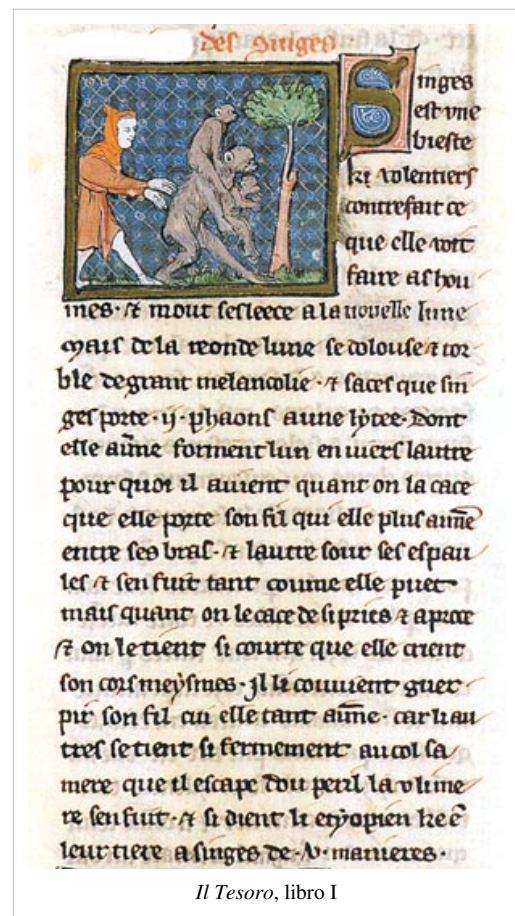 des singes
Singes
est vne
bieste
ki volentiers
contrefait ce
que elle voit
faire as hou
mes · ⁊ mout sesleece a la nouelle lune
mais de la reonde lune se dolouse ⁊ tor
ble de grant melancolie · ⁊ saces que sin
ges porte · ij · phaons a une lytee · Dont
elle aīme forment lun en uiers lautre
pour quoi il auient quant on la cace
que elle porte son fil qui elle plus aīme
entre ses bras · ⁊ lautre sour ses espau
les ⁊ sen fuit tant coume elle puet
mais quant on le cace de si pries ⁊ aproce
⁊ on le tient si courte que elle crient
son cors meysmes · Jl li couuient guer
pir son fil cui elle tant aīme · car li au
tres se tient si fermement au col sa
mere que il escape dou peril la v li me
re sen fuit · ⁊ si dient li etyopien ke ē
leur tiere a singes de · v · manieres ·
Il Tesoro, libro I